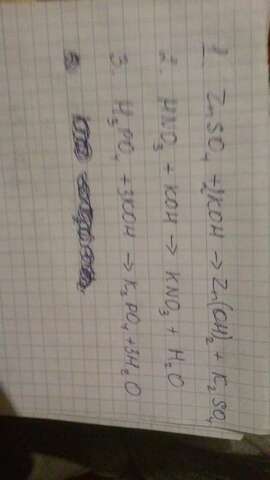 1. ZnSO4 + 2KOH → Zn(OH)2 + K2SO4
2. HNO3 + KOH → KNO3 + H2O
3. H3PO4 + 3KOH → K3PO4 + 3H2O